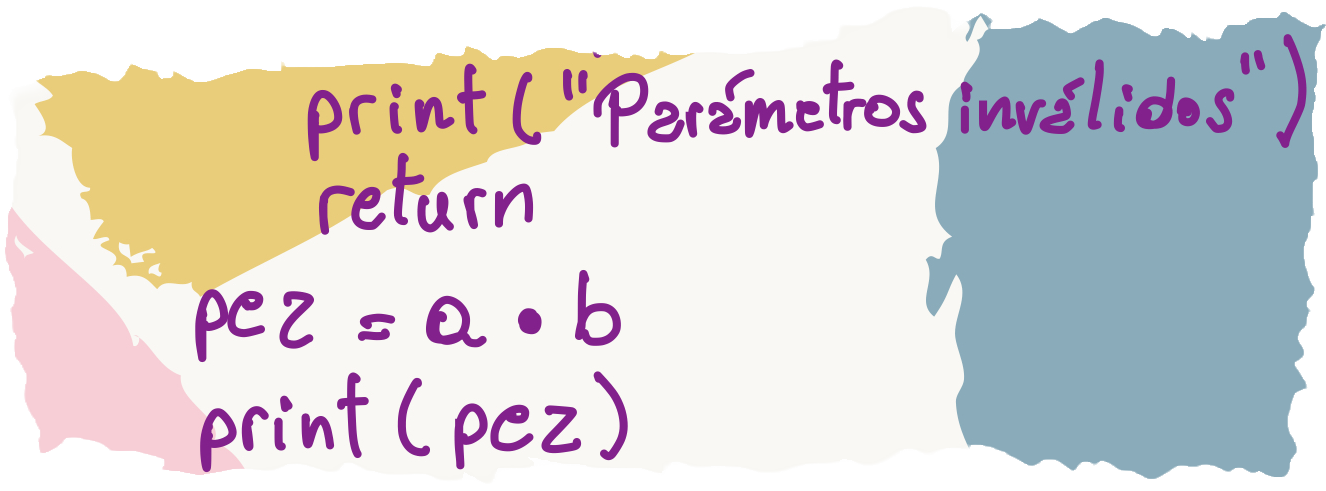 print ("Parámetros inválidos")
return
pez = a • b
print (pez)